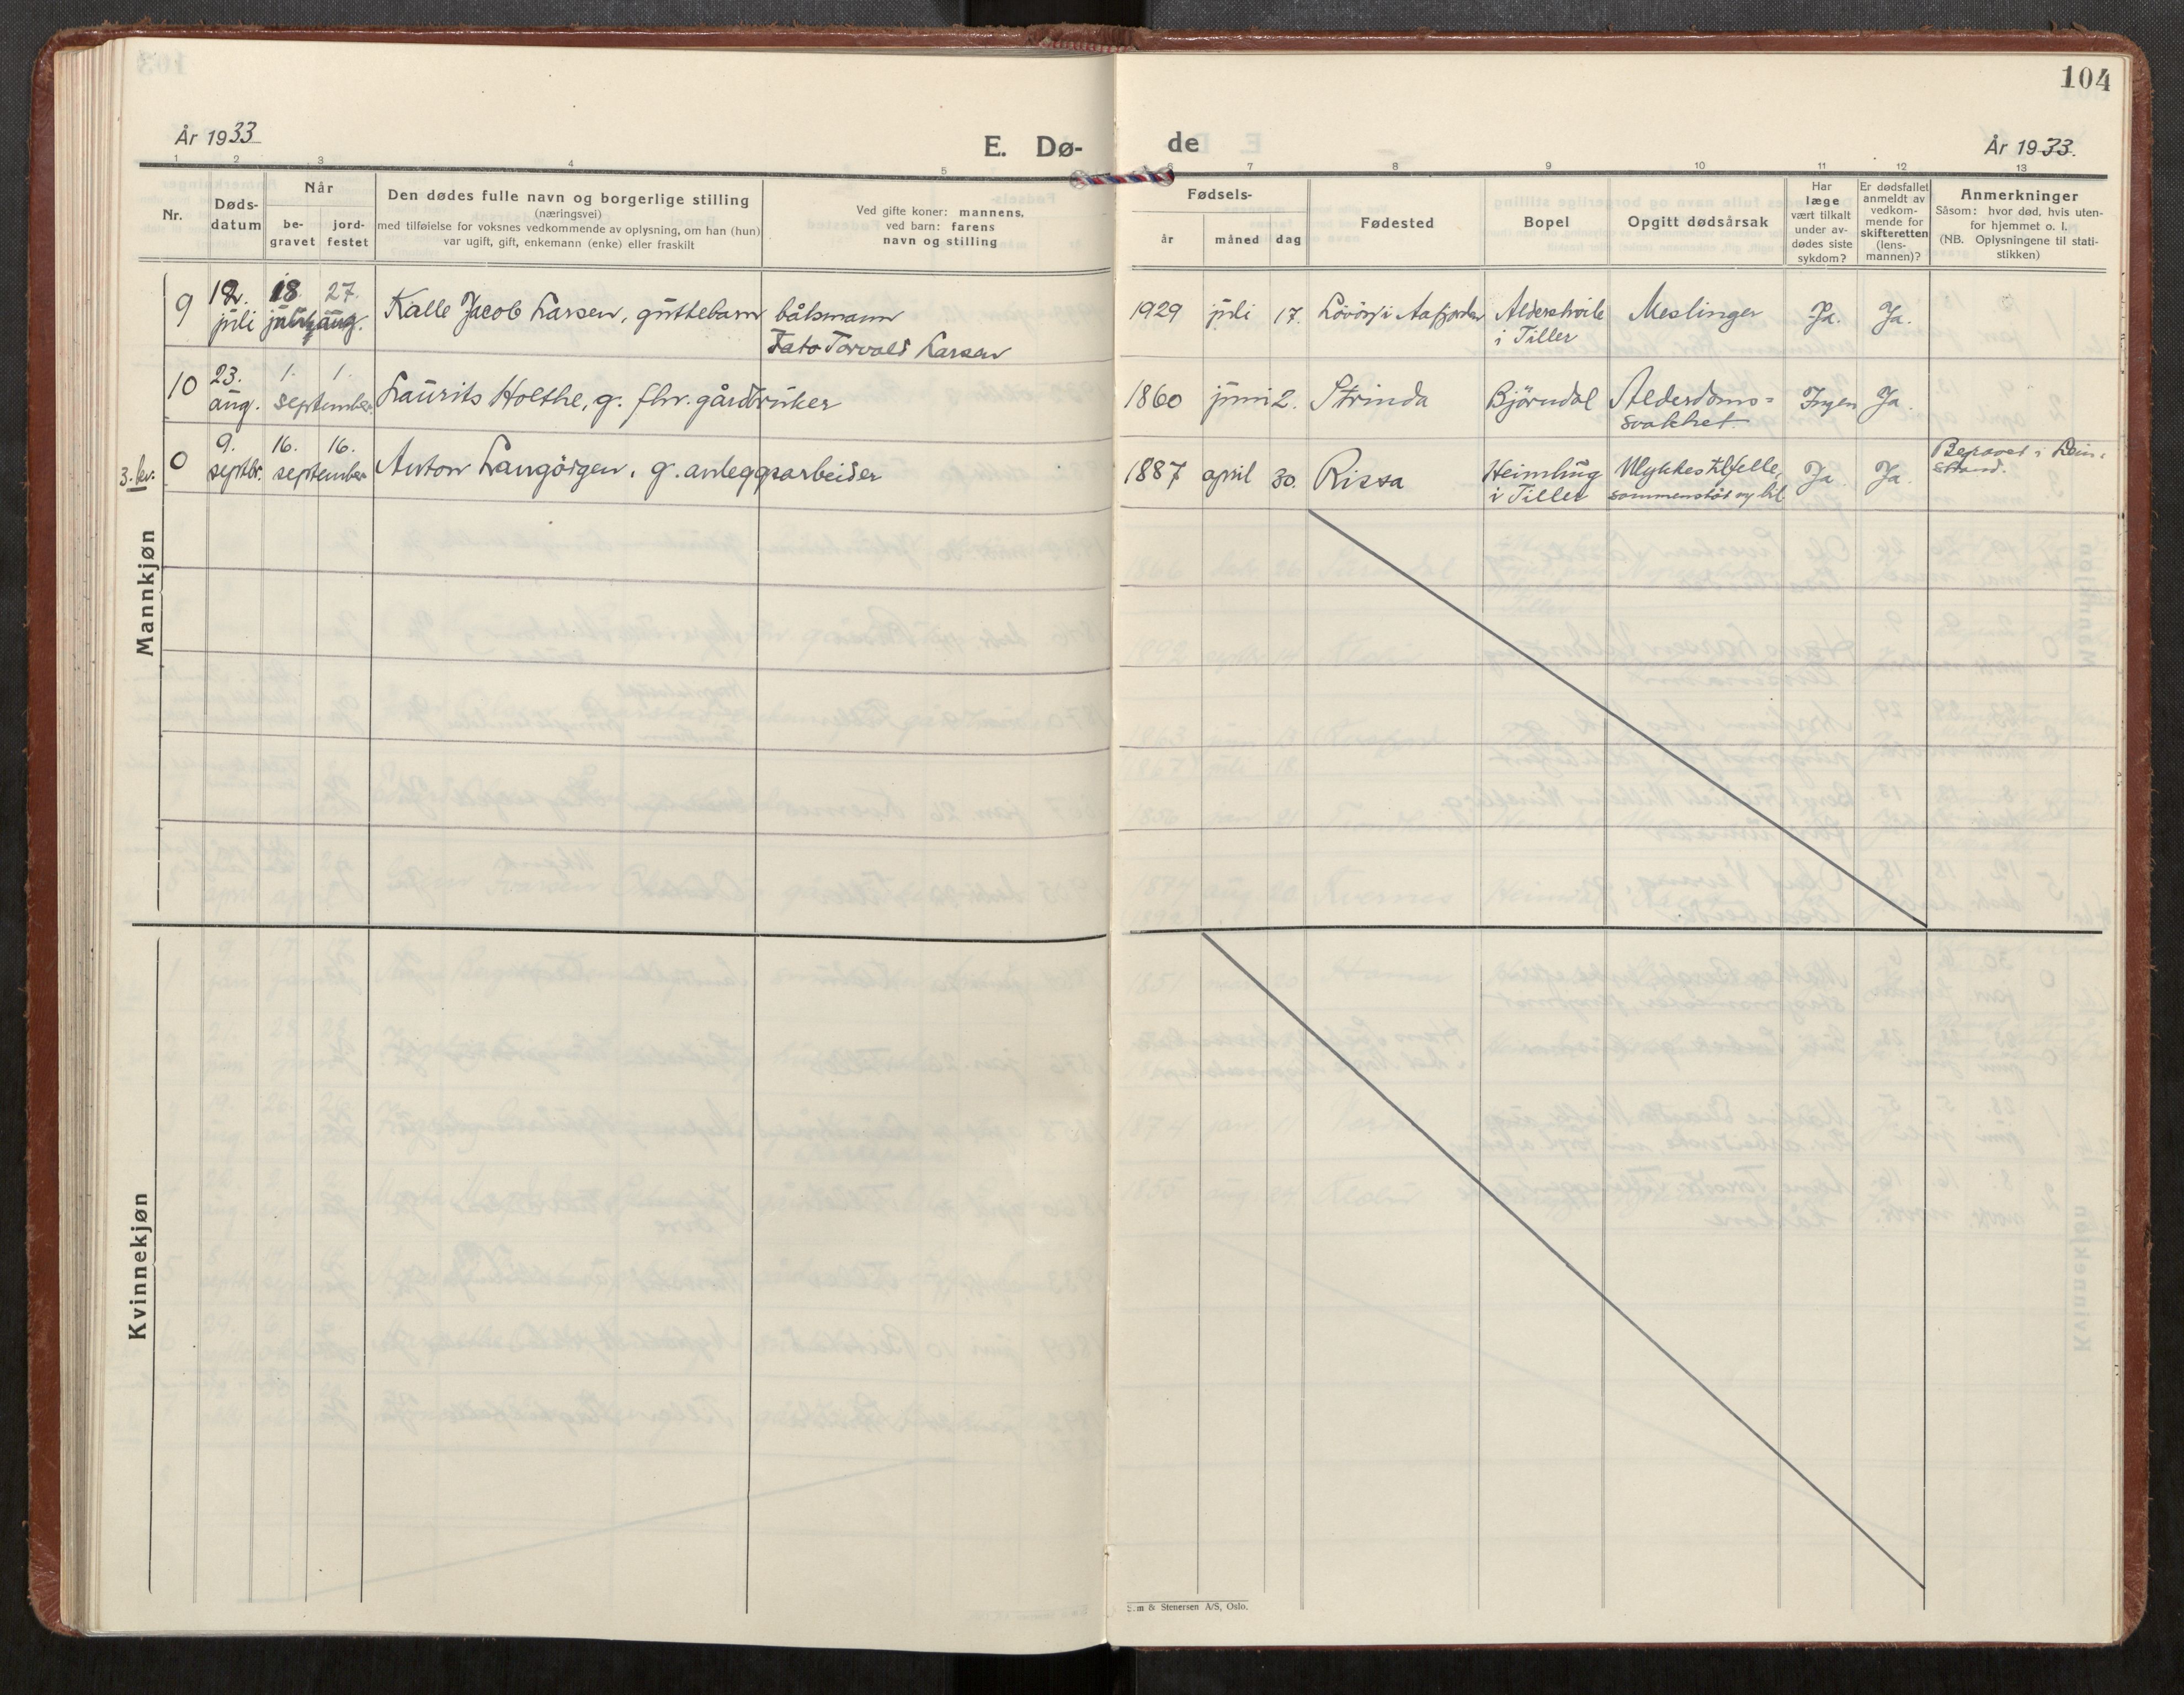 104
År 1933
E. Dø-
de
År 1933.
1 2 3 4 5 6 7 8 9 10 11 12 13
Nr.
Døds-
datum
Når
be-
gravet
jord-
festet
Den dødes fulle navn og borgerlige stilling
(næringsvei)
med tilføielse for voksnes vedkommende av oplysning, om han (hun)
var ugift, gift, enkemann (enke) eller fraskilt
Ved gifte koner: mannens,
ved barn: farens
navn og stilling
Fødsels-
år
måned
dag
Fødested
Bopel
Opgitt dødsårsak
Har
læge
vært tilkalt
under av-
dødes siste
sykdom?
Er dødsfallet
anmeldt av
vedkom-
mende for
skifteretten
(lens-
mannen)?
Anmerkninger
Såsom: hvor død, hvis uten-
for hjemmet o. l.
(NB. Oplysningene til stati-
stikken)
Mannkjøn
9
12. 18. 27.
juli aug.
Kalle Jacob Larsen, guttebarn
båtsmann
Fato Torvald Larsen
1929 juli 17.
i Aafjorden
i Tiller
Meslinger
Ja. Ja.
10
23. 1. 1.
aug. september
Laurits Holthe, g. fhv. gårdbruker
1860 juni 2.
Strinda
Björndal
Alderdoms=
svakhet
Ingen Ja.
3. kv.
0
9. 16. 16.
septbr. september
Anton Langörgen, g. anleggsarbeider
1887 april 30.
Rissa
Heimlüng
i Tiller
Ulykkestilfelle,
sammenstöt m/ bil
Ja. Ja.
Begravet i Lein-
strand.
Kvinnekjøn
m & Stenersen A/S, Oslo.